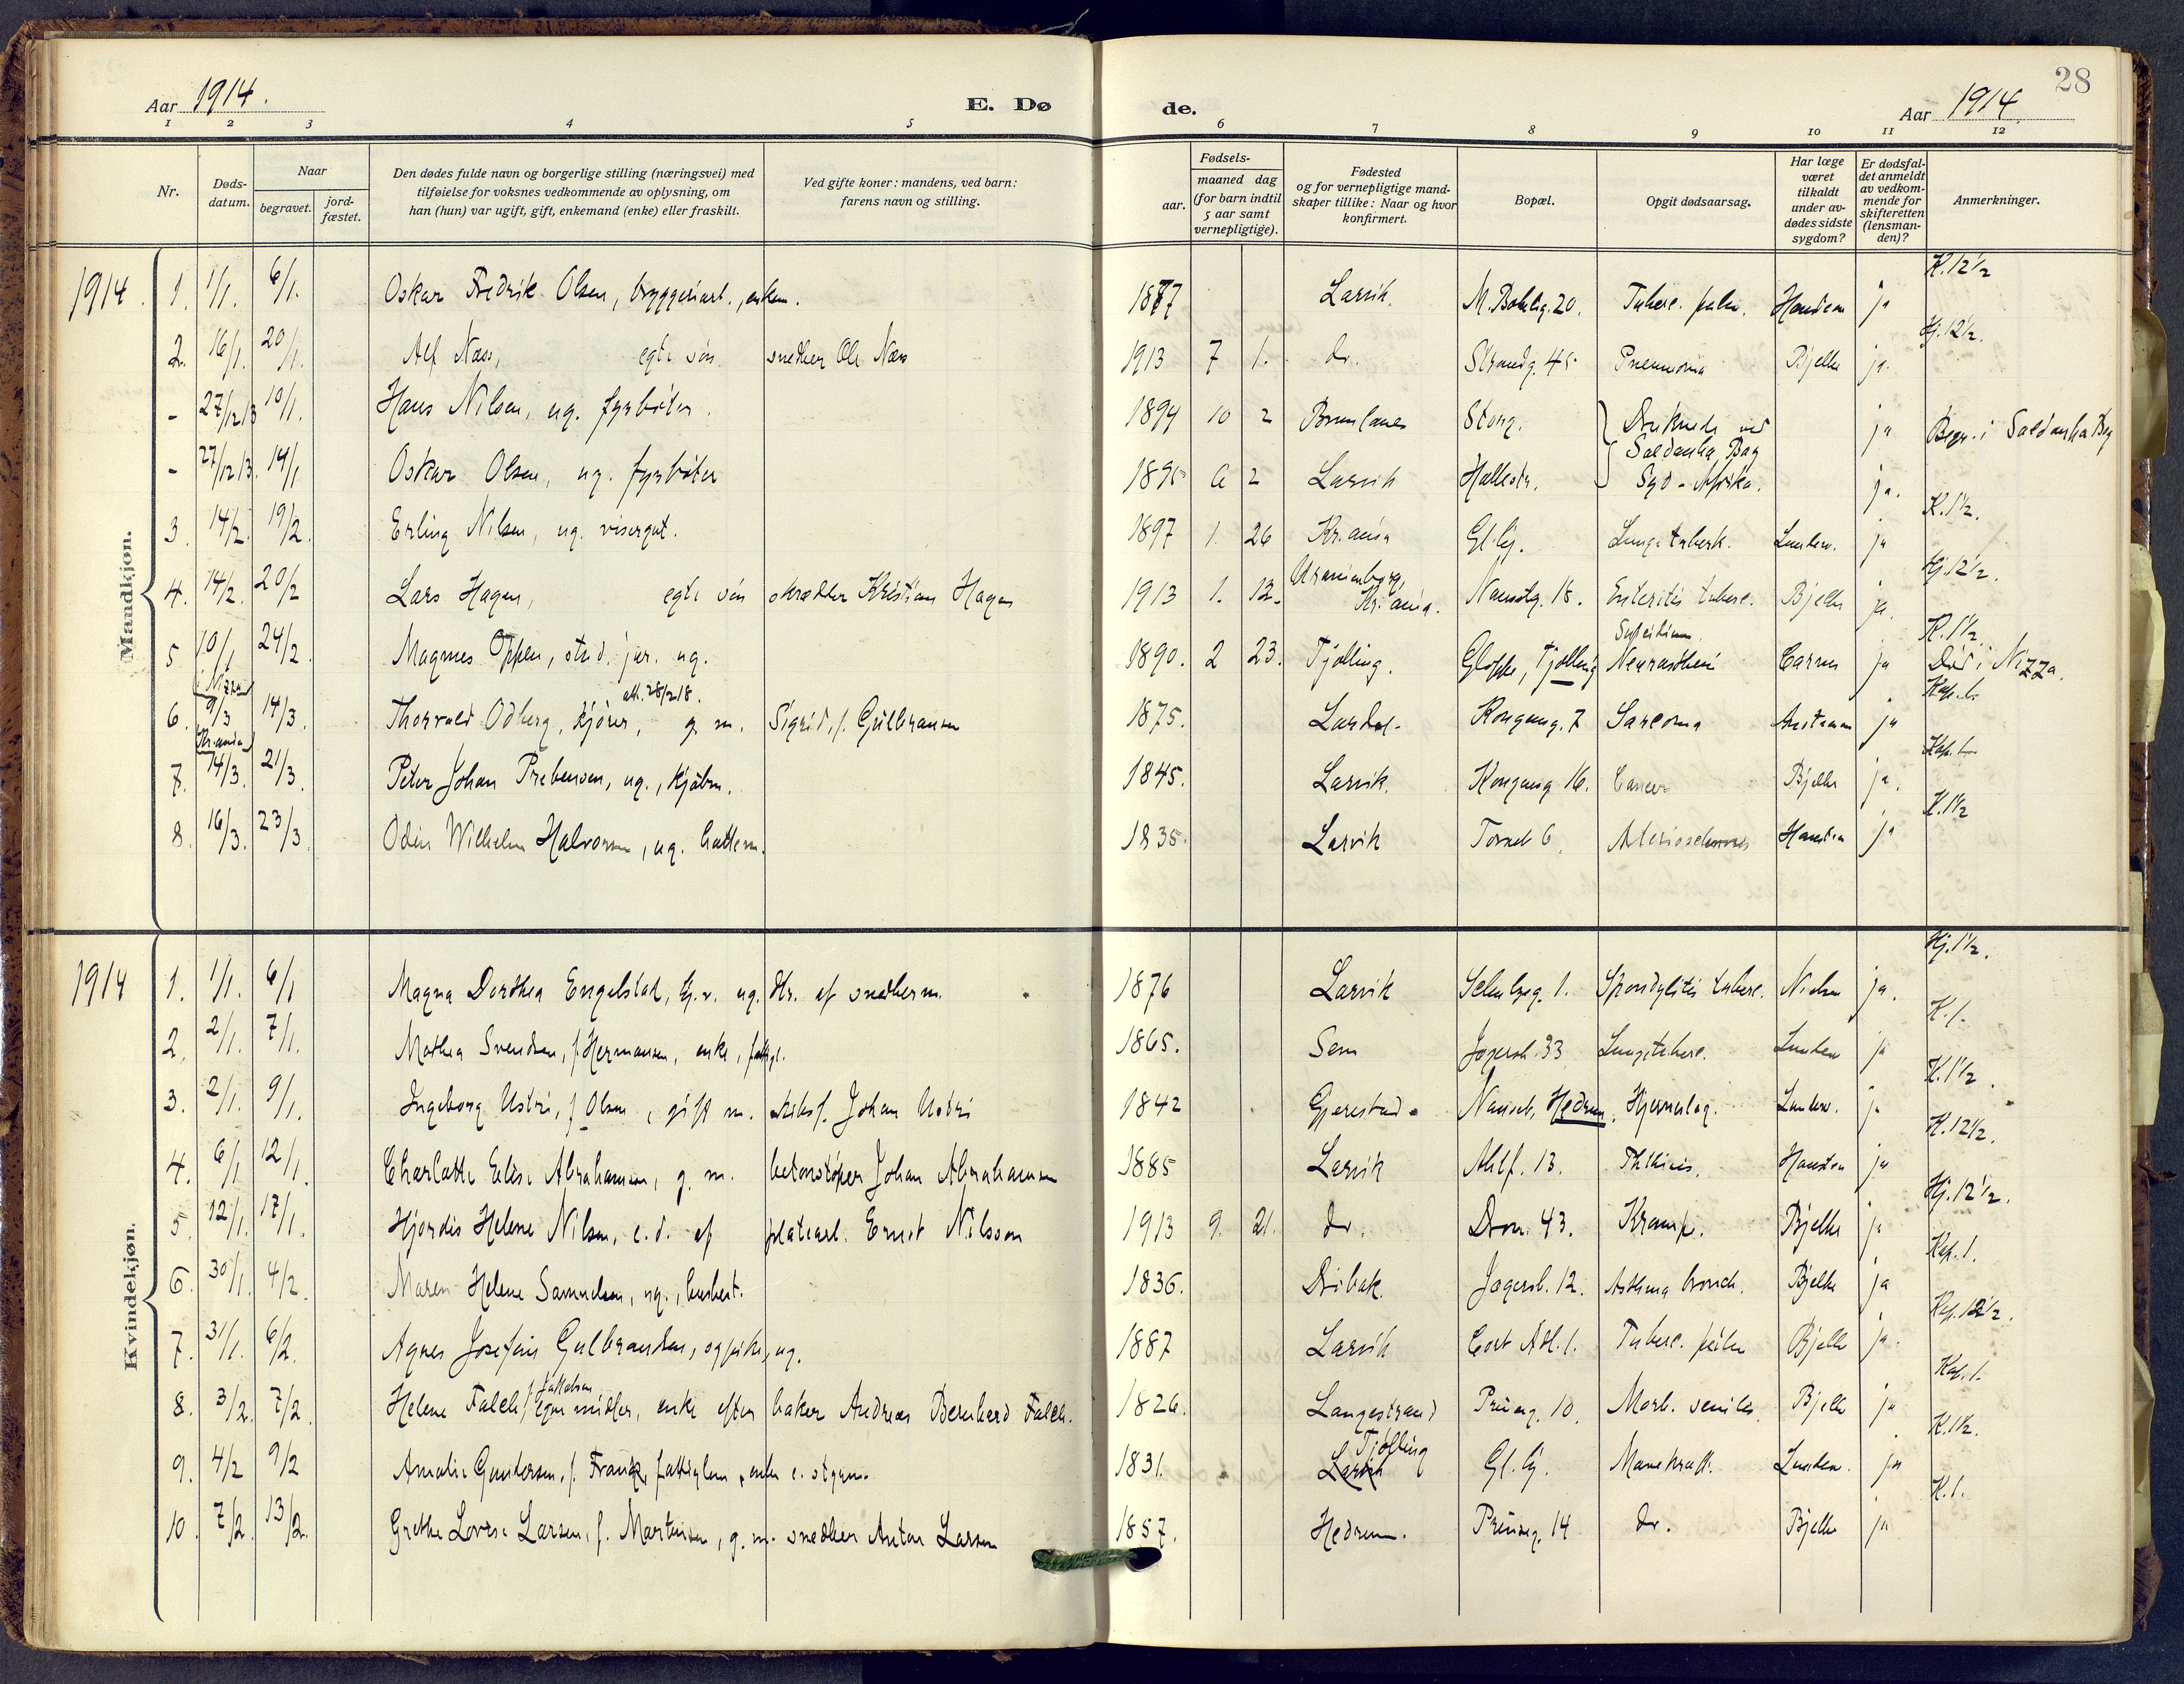 28
Aar 1914.
E. Dø
de.
Aar 1914.
1 2 3 4 5 6 7 8 9 10 11 12
Nr.
Døds-
datum.
Naar
begravet.
jord-
fæstet.
Den dødes fulde navn og borgerlige stilling (næringsvei) med
tilføielse for voksnes vedkommende av oplysning, om
han (hun) var ugift, gift, enkemand (enke) eller fraskilt.
Ved gifte koner: mandens, ved barn:
farens navn og stilling.
Fødsels-
aar.
maaned dag
(for barn indtil
5 aar samt
vernepligtige).
Fødested
og for vernepligtige mand-
skaper tillike: Naar og hvor
konfirmert.
Bopæl.
Opgit dødsaarsag.
Har læge
været
tilkaldt
under av-
dødes sidste
sygdom?
Er dødsfal-
det anmeldt
av vedkom-
mende for
skifteretten
(lensman-
den)?
Anmerkninger.
Mandkjøn.
1914. 1. 1/1. 6/1. Oskar Fredrik Olsen, bryggeriarb., enkem. 1877 Larvik. 20. Tuberc. pulm. ja K. 12 1/2
2. 16/1. 20/1. Alf Næss, egte søn snedker Ole Næss 1913 7 1. do. Strandg. 45 Pneumonia Bjelke ja. Hj. 12 1/2.
- 27/12/13 10/1. Hans Nilsen, ug. fyrbøter. 1894 10 2 Brunlanes Storg. Druknede ved ja Begr. i Saldanha Bay
Saldanha Bay
- 27/12/13. 14/1 Oskar Olsen, ug. fyrbøter 1895 6 2 Larvik Syd-Afrika. ja.
3. 14/2. 19/2. Erling Nilsen, ug. visergut. 1897 1. 26 Kr.ania Gl. by. Lungetuberk. Lunden. ja K. 1 1/2.
4. 14/2. 20/2 Lars Hagen, egte søn skrædder Kristian Hagen 1913 1. 12. Uranienborg, Kr.ania. 18. Enteritis tuberc. Bjelke ja. Hj. 12 1/2.
5 10/1 i Nizza 24/2. Magnus Oppen, stud. jur. ug. 1890. 2 23. Tjølling. Gloppe, Tjølling Neurastheni ja K. 1 1/2. Død i Nizza.
6. 9/3 Kr.ania 14/3. Thorvald Odberg, kjører, g. m. Sigrid, f. Gulbransen 1875. Lardal. Kongeg. 7 Sarcoma ja Kap. 1.
7. 14/3. 21/3. Peter Johan Prebensen, ug., kjøbm. 1845. Larvik. Kongeg 16. Cancer Bjelke ja. Kap. 1
8. 16/3. 23/3. Odin Wilhelm Halvorsen, ug. hattem. 1835. Larvik Torvet 6. ja K. 1 1/2
Kvindekjøn.
1914 1. 1/1. 6/1 Magna Dorthea Engelstad, ug. dtr. af snedkerm. 1876 Larvik 1. Spondylitis tuberc. Nielsen ja. Hj. 1 1/2.
2. 2/1. 7/1. Mathea Svendsen, f. Hermansen, enke, 1865. Sem Jegersb. 33 Lungetuberc. Lunden ja K. 1.
3. 2/1. 9/1. Ingeborg Ustri, f. Olsen, gift m. skibsf. Johan Ustri 1842 Gjerestad. Hedrum. Hjerneslag. Lunden. ja K. 1 1/2.
4. 6/1 12/1. Charlotte Elise Abrahamsen, g. m. betonstøper Johan Abrahamsen 1885 Larvik 13. Phthisis. ja K. 12 1/2.
5. 12/1. 17/1. Hjørdis Helene Nilsen, e. d. af platearb. Ernst Nilsson 1913 9. 21. do. Dron. 43. Krampe. Bjelke ja Hj. 12 1/2.
6. 30/1. 4/2. Maren Helene Samuelsen, ug., husbest. 1836. Drøbak. Jegersb. 12. Asthma bronch. Bjelke ja Kap. 1.
7. 31/1. 6/2. Agnes Josefine Gulbrandsen, sypike, ug. 1887 Larvik Cort Adl. 1. Tuberc. pulm Bjelke ja. Kap. 12 1/2.
8. 3/2. 7/2. Helene Falch, f. Jakobsen egne midler, enke efter baker Andreas Bernherd Falch. 1826. Langestrand Prinseg. 10. Morb. seniles. Bjelke ja Kap. 1.
9. 4/2 9/2 Amalie Gundersen, f. Franck, fattiglem, enke e. 1831. Larvik Tjølling Gl. by. Lunden. ja K. 1 1/2.
10. 7/2. 13/2. Grethe Lovise Larsen, f. Martinsen, g. m. snedker Anton Larsen 1857. Hedrum. Prinseg. 14 do. Bjelke ja K. 1.